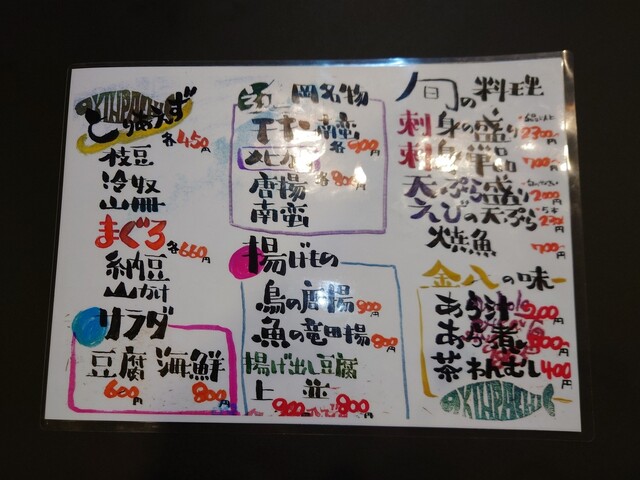 KINPACHI
とりあえず
各450円
枝豆
冷奴
まぐろ
各660円
納豆
山かけ
サラダ
豆腐 海鮮
600円 800円
延岡名物
チキン南蛮
各900円
各800円
唐揚
南蛮
揚げもの
鳥の唐揚
900円
魚の竜田揚
800円
揚げ出し豆腐
上 並
900円 800円
旬の料理
刺身の盛り
2300円
刺身単品
700円~
天ぷら盛り
2000円
えびの天ぷら
焼魚
700円~
金八の味
あら汁
200円
あら煮
800円~
茶わんむし
400円
KINPACHI